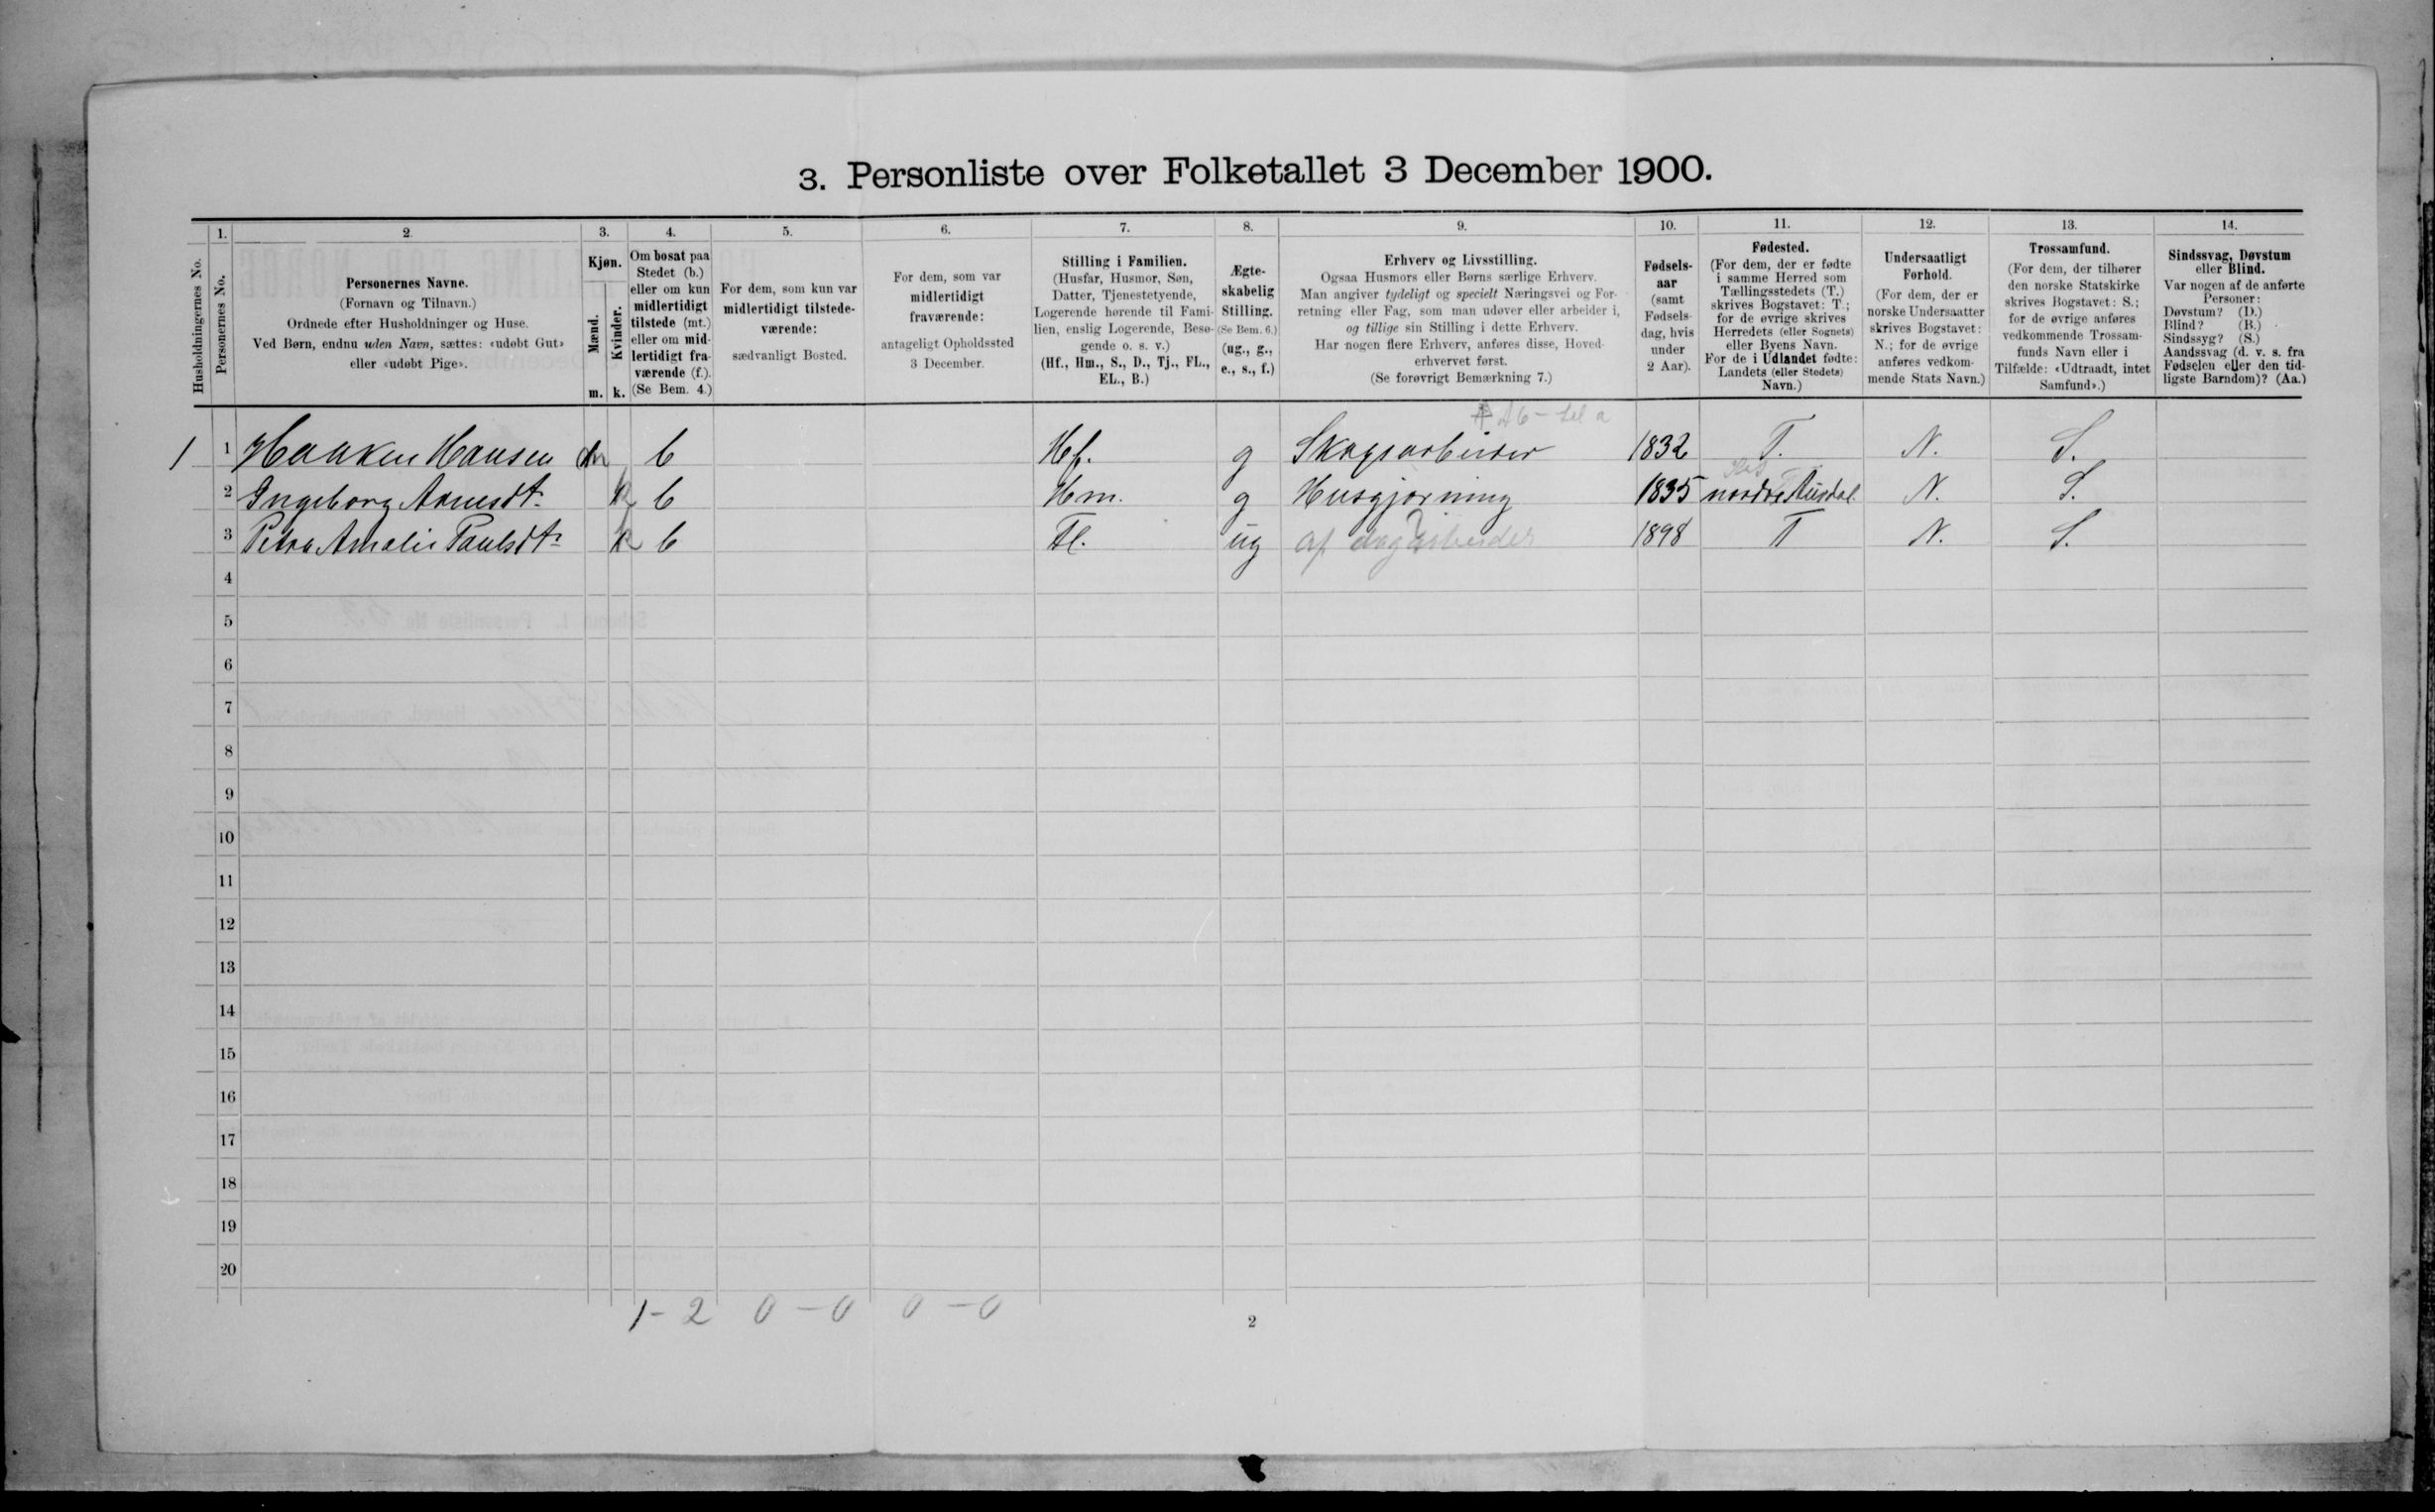 3. Personliste over Folketallet 3 December 1900.
1. 2. 3. 4. 5. 6. 7. 8. 9. 10. 11. 12. 13. 14.
Husholdningernes No.
Personernes No.
Personernes Navne.
(Fornavn og Tilnavn.)
Ordnede efter Husholdninger og Huse.
Ved Børn, endnu uden Navn, sættes: «udøbt Gut»
eller «udøbt Pige».
Kjøn.
Mænd.
Kvinder.
m. k.
Om bosat paa
Stedet (b.)
eller om kun
midlertidigt
tilstede (mt.)
eller om mid-
lertidigt fra-
værende (f.).
(Se Bem. 4.)
For dem, som kun var
midlertidigt tilstede-
værende:
sædvanligt Bosted.
For dem, som var
midlertidigt
fraværende:
antageligt Opholdssted
3 December.
Stilling i Familien.
(Husfar, Husmor, Søn,
Datter, Tjenestetyende,
Logerende hørende til Fami-
lien, enslig Logerende, Besø-
gende o. s. v.)
(Hf., Hm., S., D., Tj., FL.,
EL., B.)
Ægte-
skabelig
Stilling.
(Se Bem. 6.)
(ug., g.,
e., s., f.)
Erhverv og Livsstilling.
Ogsaa Husmors eller Børns særlige Erhverv.
Man angiver tydeligt og specielt Næringsvei og For-
retning eller Fag, som man udøver eller arbeider i,
og tillige sin Stilling i dette Erhverv.
Har nogen flere Erhverv, anføres disse, Hoved-
erhvervet først.
(Se forøvrigt Bemærkning 7.)
Fødsels-
aar
(samt
Fødsels-
dag, hvis
under
2 Aar).
Fødested.
(For dem, der er fødte
i samme Herred som
Tællingsstedets (T.)
skrives Bogstavet: T.;
for de øvrige skrives
Herredets (eller Sognets)
eller Byens Navn.
For de i Udlandet fødte:
Landets (eller Stedets)
Navn.)
Undersaatligt
Forhold.
(For dem, der er
norske Undersaatter
skrives Bogstavet:
N.; for de øvrige
anføres vedkom-
mende Stats Navn.)
Trossamfund.
(For dem, der tilhører
den norske Statskirke
skrives Bogstavet: S.;
for de øvrige anføres
vedkommende Trossam-
funds Navn eller i
Tilfælde: «Udtraadt, intet
Samfund».)
Sindssvag, Døvstum
eller Blind.
Var nogen af de anførte
Personer:
Døvstum? (D.)
Blind? (B.)
Sindssyg? (S.)
Aandssvag (d. v. s. fra
Fødselen eller den tid-
ligste Barndom)? (Aa.)
1 1 Haaken Hansen m b Hf. g Skogsarbeider 1832 T. N. S.
2 Ingeborg Arnesdt. k b Hm. g Husgjørning 1835 nordre Ausdal N. S.
3 Petra Amalie Paulsdt. k b Fl. ug af dagarbeider 1898 T N. S.
4
5
6
7
8
9
10
11
12
13
14
15
16
17
18
19
20
1 - 2 0 - 0 0 - 0
2